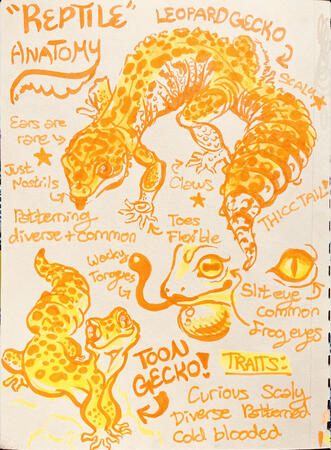 "REPTILE"
ANATOMY
LEOPARD GECKO
SCALY
Ears are
rare
Just
Nostrils
Patterning
diverse + common
Claws
Toes
Flexible
THICC TAIL
Wacky
Tongues
Slit eye
common
frog eyes
TOON
GECKO!
TRAITS:
Curious Scaly
Diverse Patterned
Cold blooded